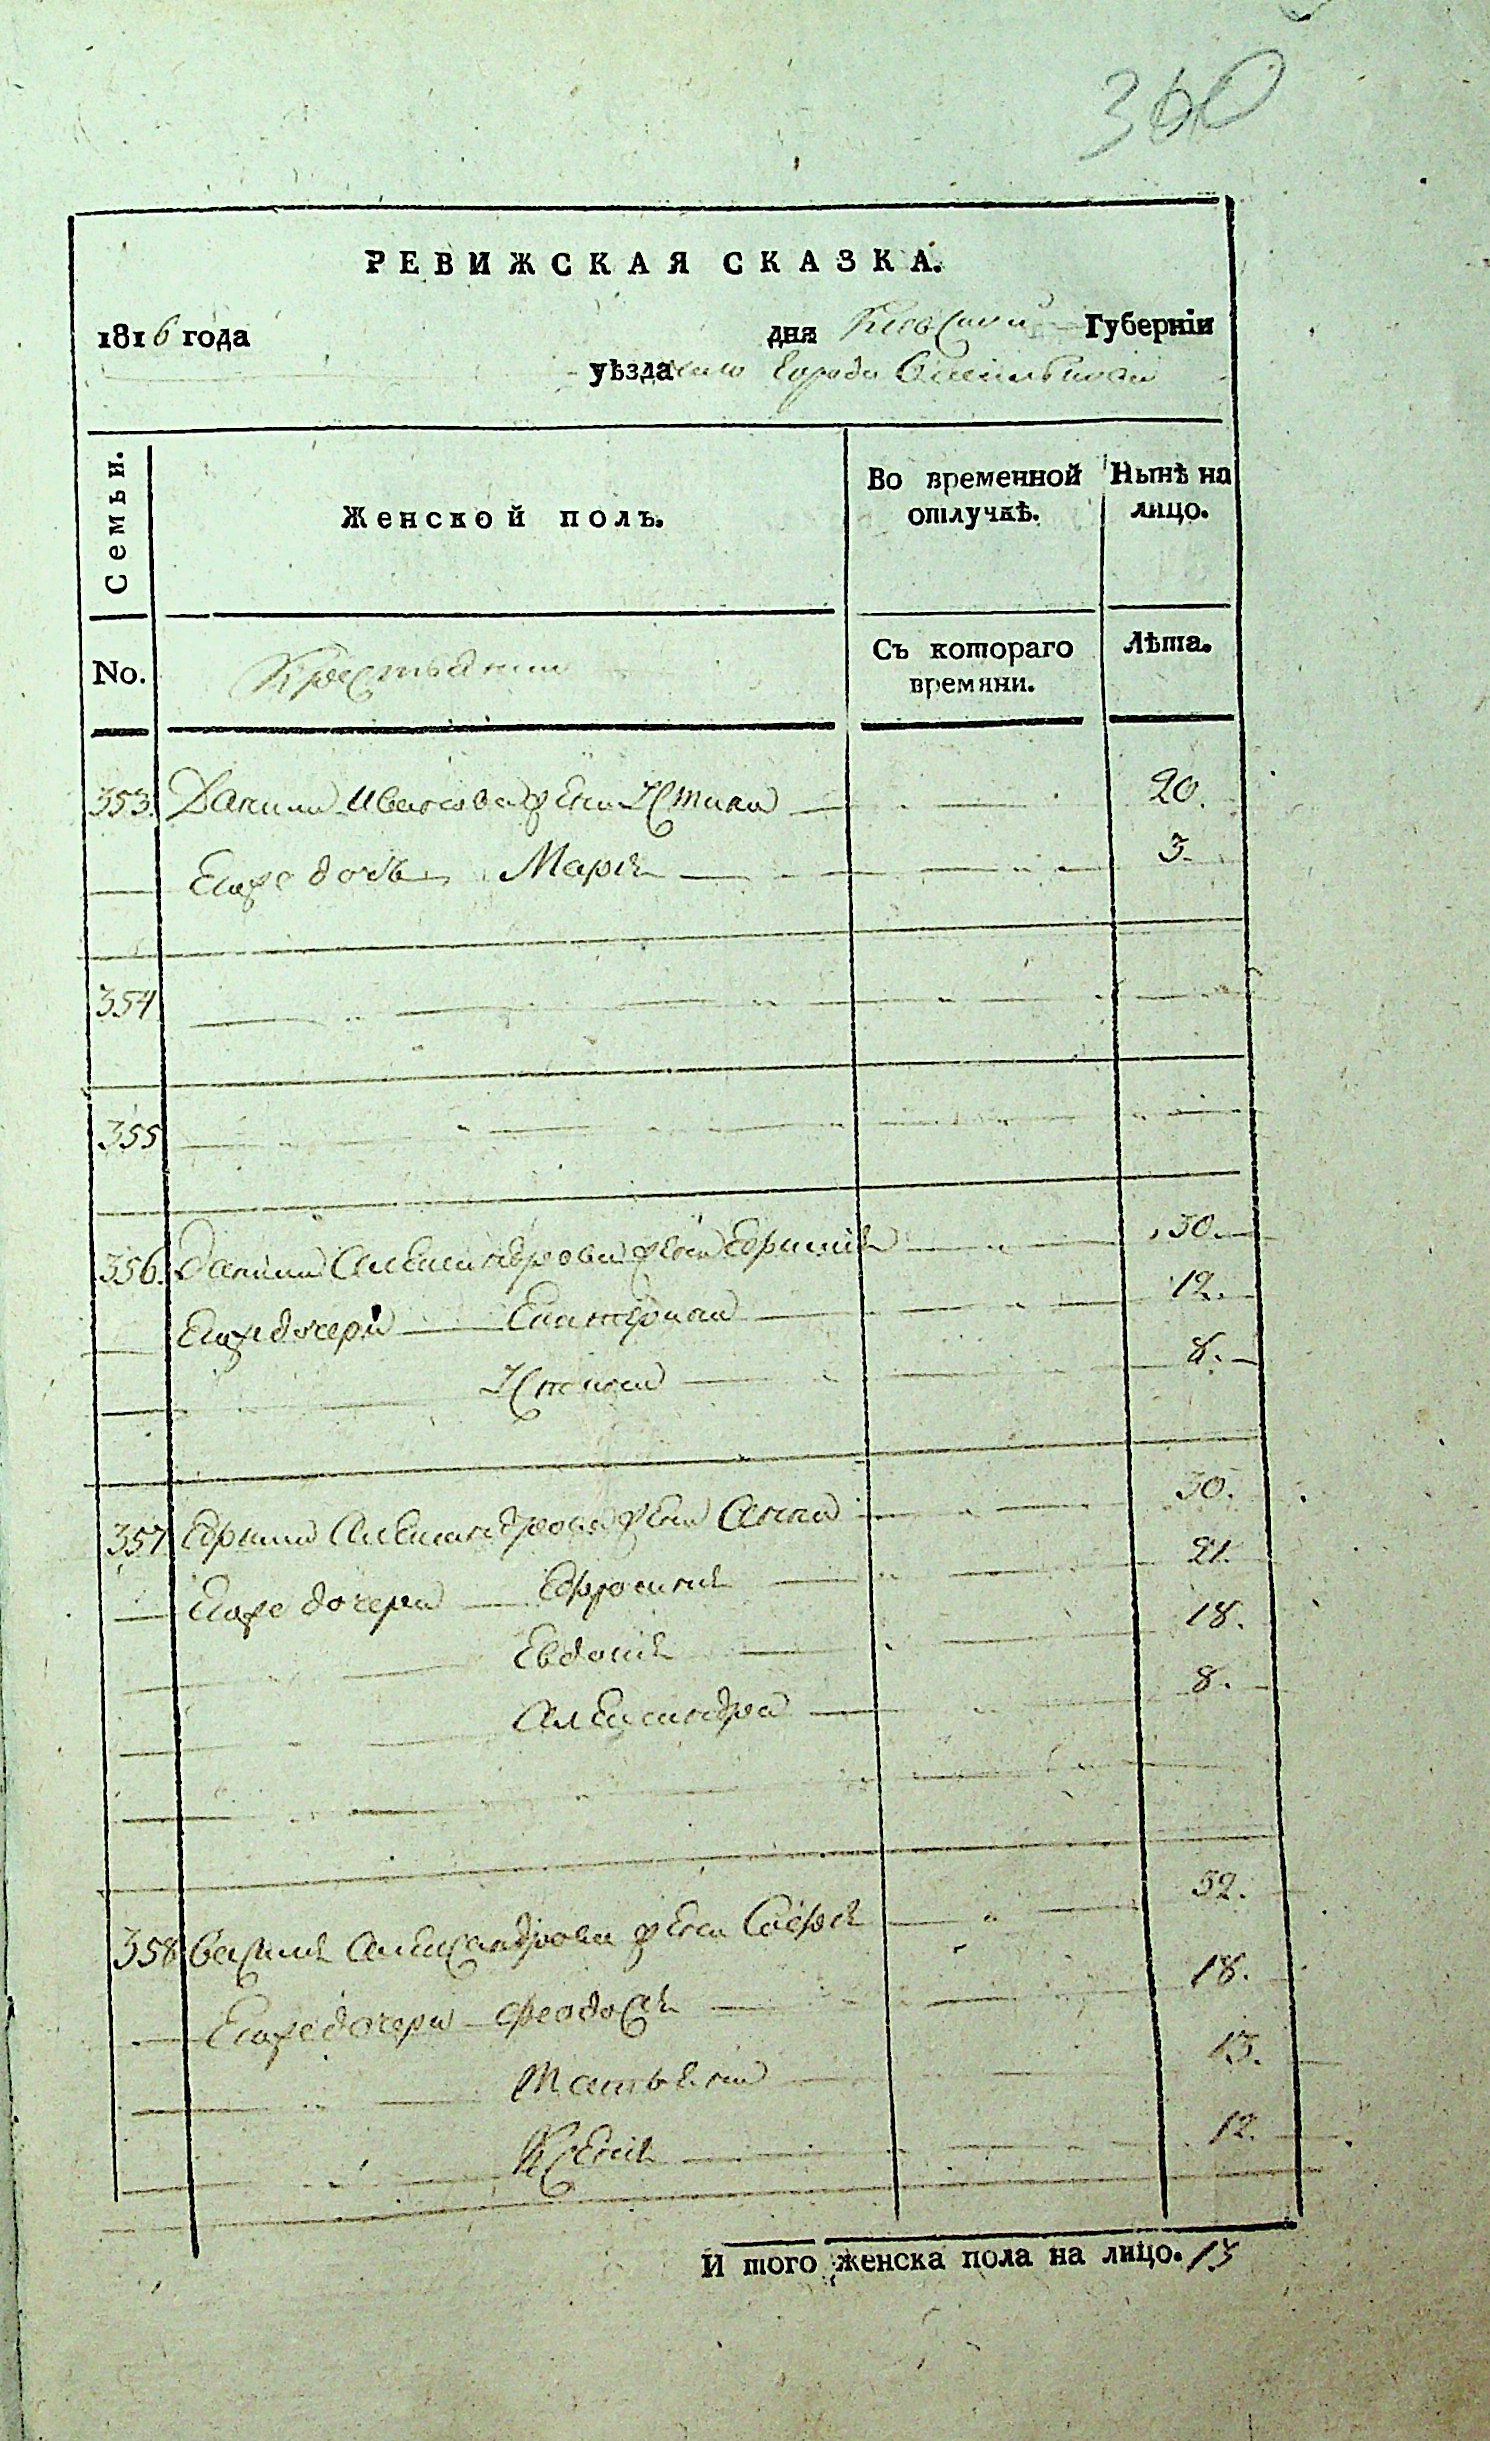 360
РЕВИЖСКАЯ СКАЗКА.
1816 года дня Киевской Губернїи
уѣзда города
Семьи.
Женской полъ.
Во временной отлучкѣ.
Нынѣ на лицо.
No.
Крестьяне
Съ котораго времяни.
Лѣта.
353. Данила Иванова жена Устина 20.
Егоже дочь Марія 3.
354
355
356. Данила Александрова жена 30.
Егоже дочери Екатерина 12.
Устина 8.
357 Александрова жена Анна 30.
Егоже дочери Ефросинія 21.
Евдокія 18.
Александра 8.
358 Василія Александрова жена Софія 52.
Егоже дочери Феодосія 18.
Татьяна 13.
Ксенія 12.
И того женска пола на лицо. 13